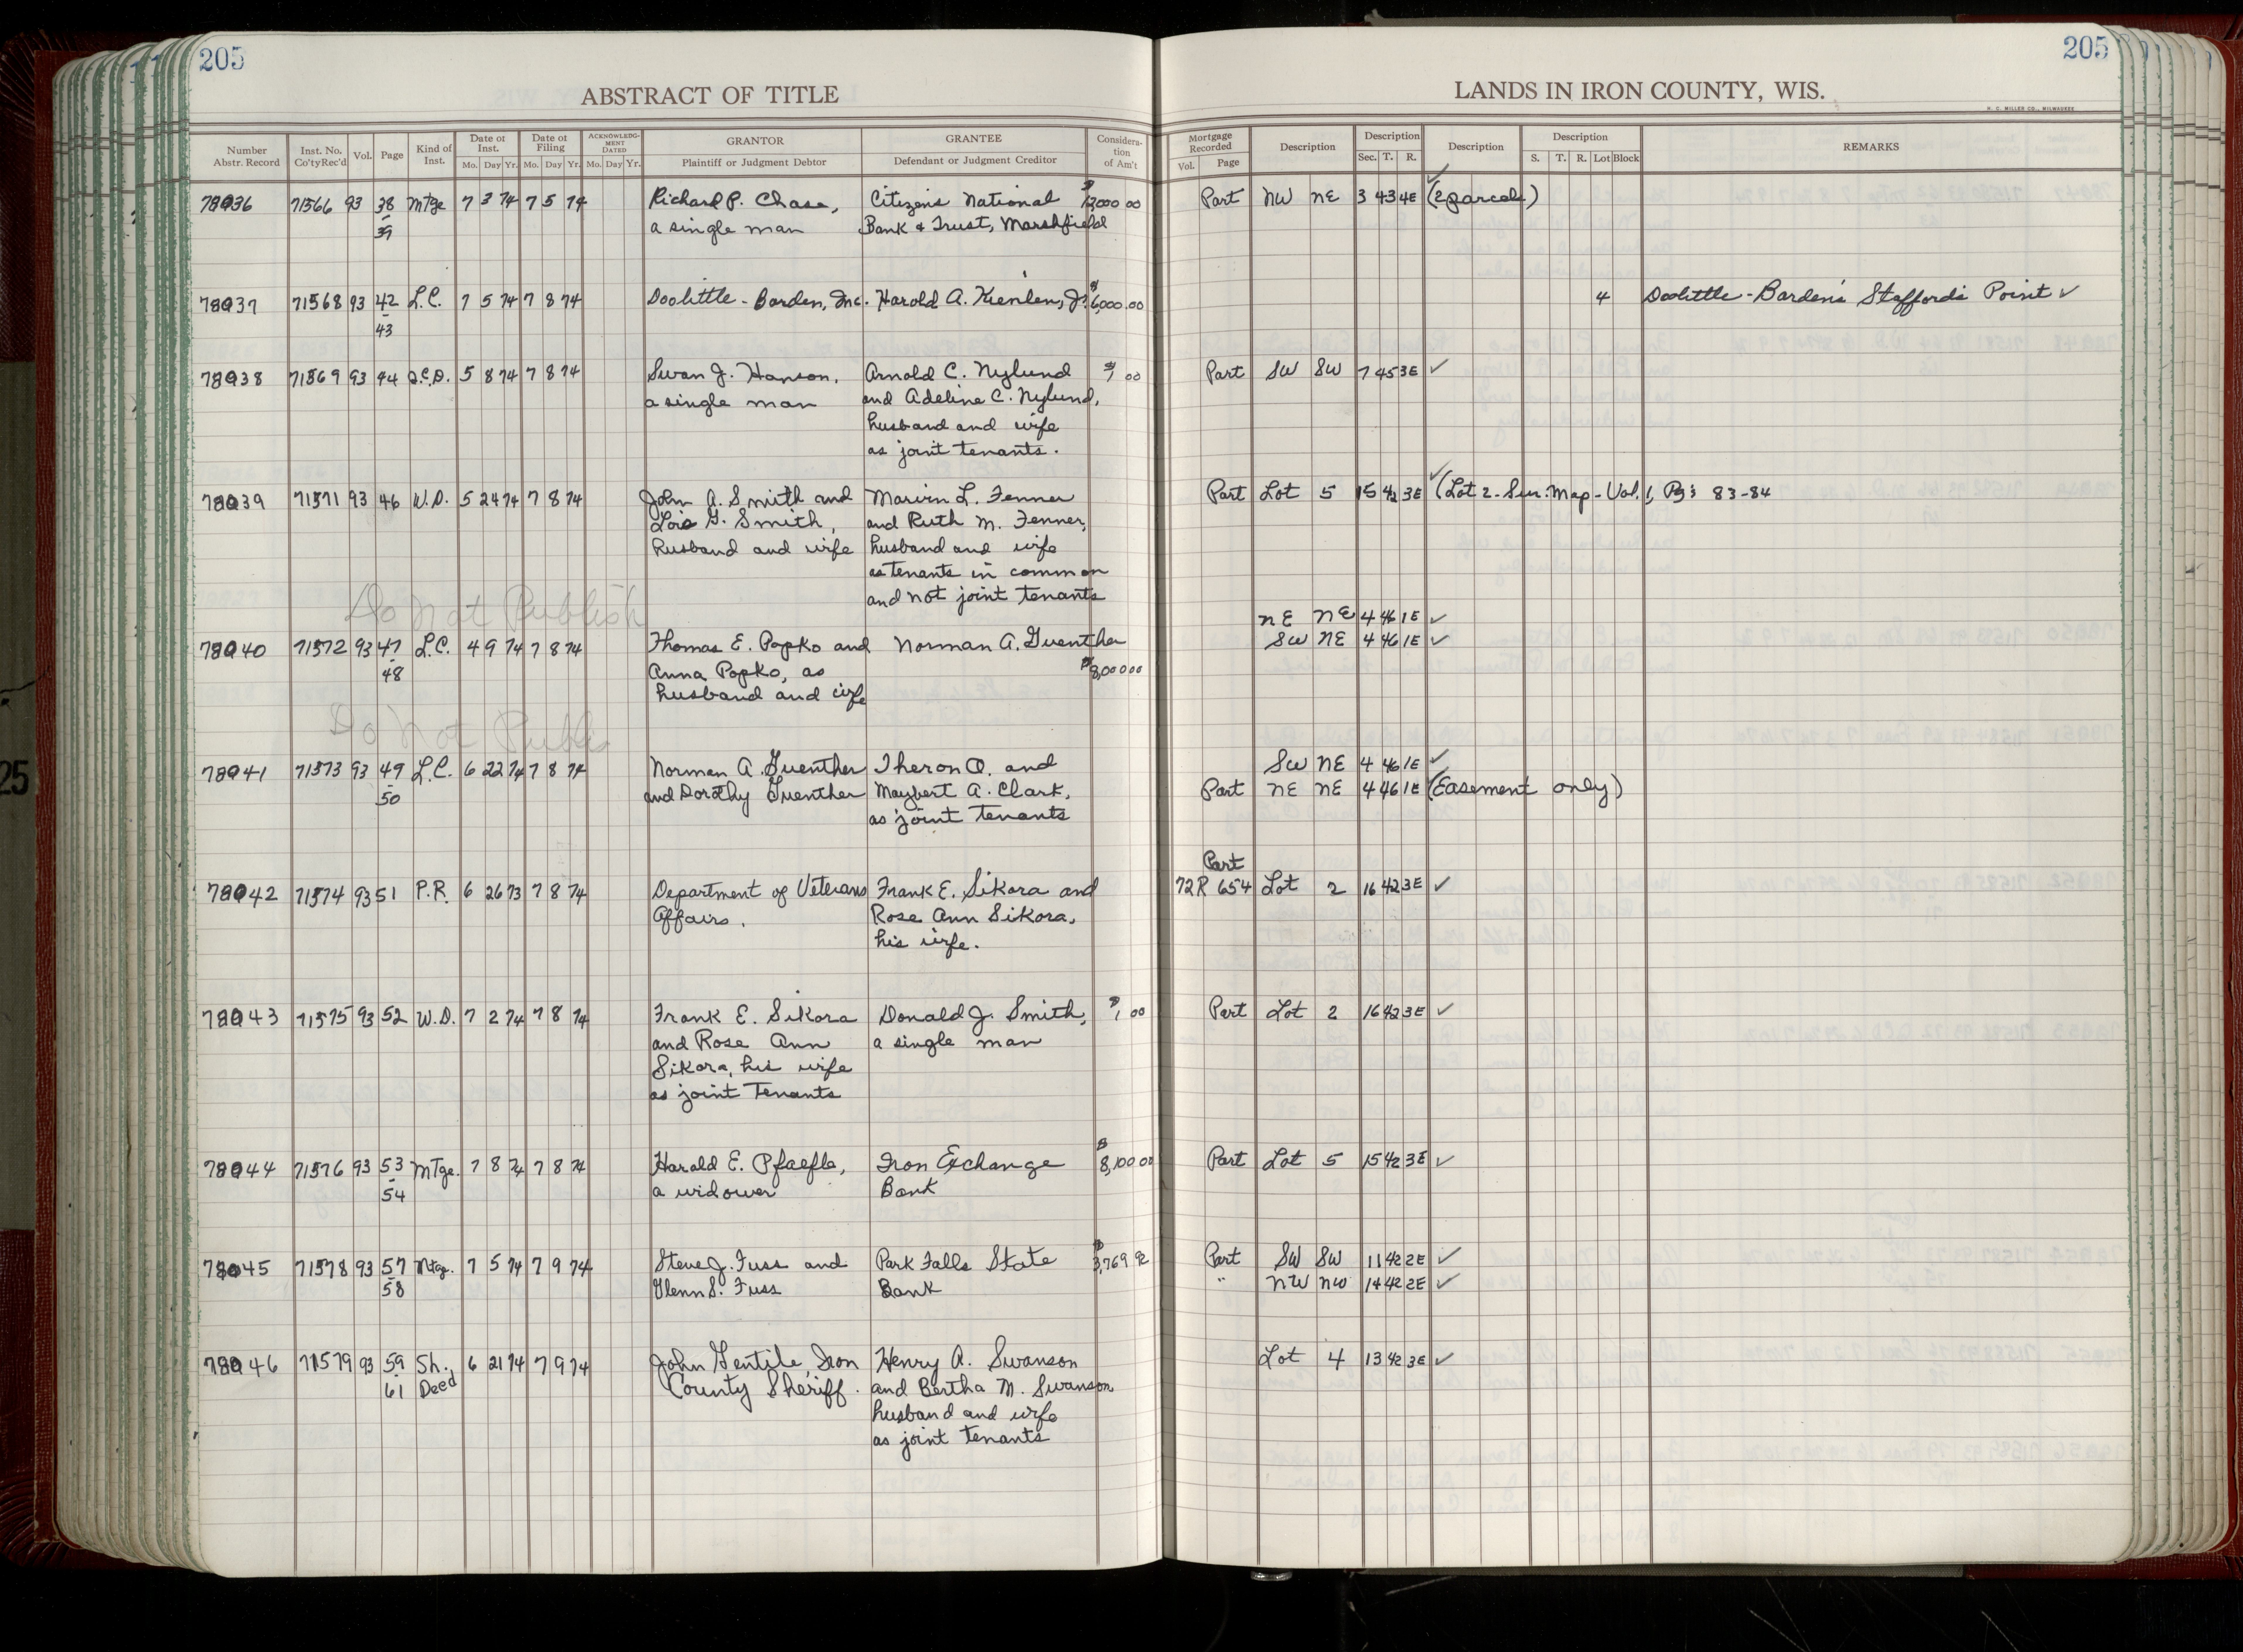 205
205
ABSTRACT OF TITLE
LANDS IN IRON COUNTY, WIS.
H. C. MILLER CO., MILWAUKEE
Number Abstr. Record | Inst. No. Co'ty Rec'd | Vol. | Page | Kind of Inst. | Date of Inst. Mo. Day Yr. | Date of Filing Mo. Day Yr. | ACKNOWLEDGMENT DATED Mo. Day Yr. | GRANTOR Plaintiff or Judgment Debtor | GRANTEE Defendant or Judgment Creditor | Consideration of Am't | Mortgage Recorded Vol. Page | Description | Description Sec. T. R. | Description | Description S. T. R. Lot Block | REMARKS
71566 93 38 Mtge 7 3 74 7 5 74 Richard P. Chase, Citizens National 00 Part NW NE 3 43 4E (2 parcels)
39 a single man Bank & Trust, Marshfield
71568 93 42 L.C. 7 5 74 7 8 74 Doolittle - Borden, Inc. Harold A. Kienlen, Jr. $6,000.00 4 Doolittle - Borden's Stafford's Point ✓
43
71569 93 44 Q.C.D. 5 8 74 7 8 74 Swan J. Hanson, Arnold C. Nylund $1 00 Part SW SW 7 45 3E ✓
a single man and Adeline C. Nylund,
husband and wife
as joint tenants.
71571 93 46 W.D. 5 24 74 7 8 74 John A. Smith and Marvin L. Fenner Part Lot 5 15 42 3E ✓ (Lot 2 - Sur. Map - Vol. 1, Pg's 83-84
Lois G. Smith, and Ruth M. Fenner,
husband and wife husband and wife
as tenants in common
Do not Publish and not joint tenants
NE NE 4 46 1E ✓
71572 93 47 L.C. 4 9 74 7 8 74 Thomas E. Popko and Norman A. Guenther SW NE 4 46 1E ✓
48 Anna Popko, as $8,000 00
husband and wife
Do not Publi
71573 93 49 L.C. 6 22 74 7 8 74 Norman A. Guenther Theron O. and SW NE 4 46 1E ✓
50 and Dorothy Guenther Maybert A. Clark, Part NE NE 4 46 1E (Easement only)
as joint tenants
Part
71574 93 51 P.R. 6 26 73 7 8 74 Department of Veterans Frank E. Sikora and 72R 654 Lot 2 16 42 3E ✓
Affairs. Rose Ann Sikora,
his wife.
71575 93 52 W.D. 7 2 74 7 8 74 Frank E. Sikora Donald J. Smith, $1 00 Part Lot 2 16 42 3E ✓
and Rose Ann a single man
Sikora, his wife
as joint Tenants
71576 93 53 MTge. 7 8 74 7 8 74 Harold E. Pfaefle, Iron Exchange $8,100 00 Part Lot 5 15 42 3E ✓
54 a widower Bank
71578 93 57 Mtge. 7 5 74 7 9 74 Steve J. Fuss and Park Falls State $3,769 92 Part SW SW 11 42 2E ✓
58 Glenn S. Fuss Bank " NW NW 14 42 2E ✓
71579 93 59 Sh. 6 21 74 7 9 74 John Gentile, Iron Henry A. Swanson Lot 4 13 42 3E ✓
61 Deed County Sheriff. and Bertha M. Swanson
husband and wife
as joint tenants
25